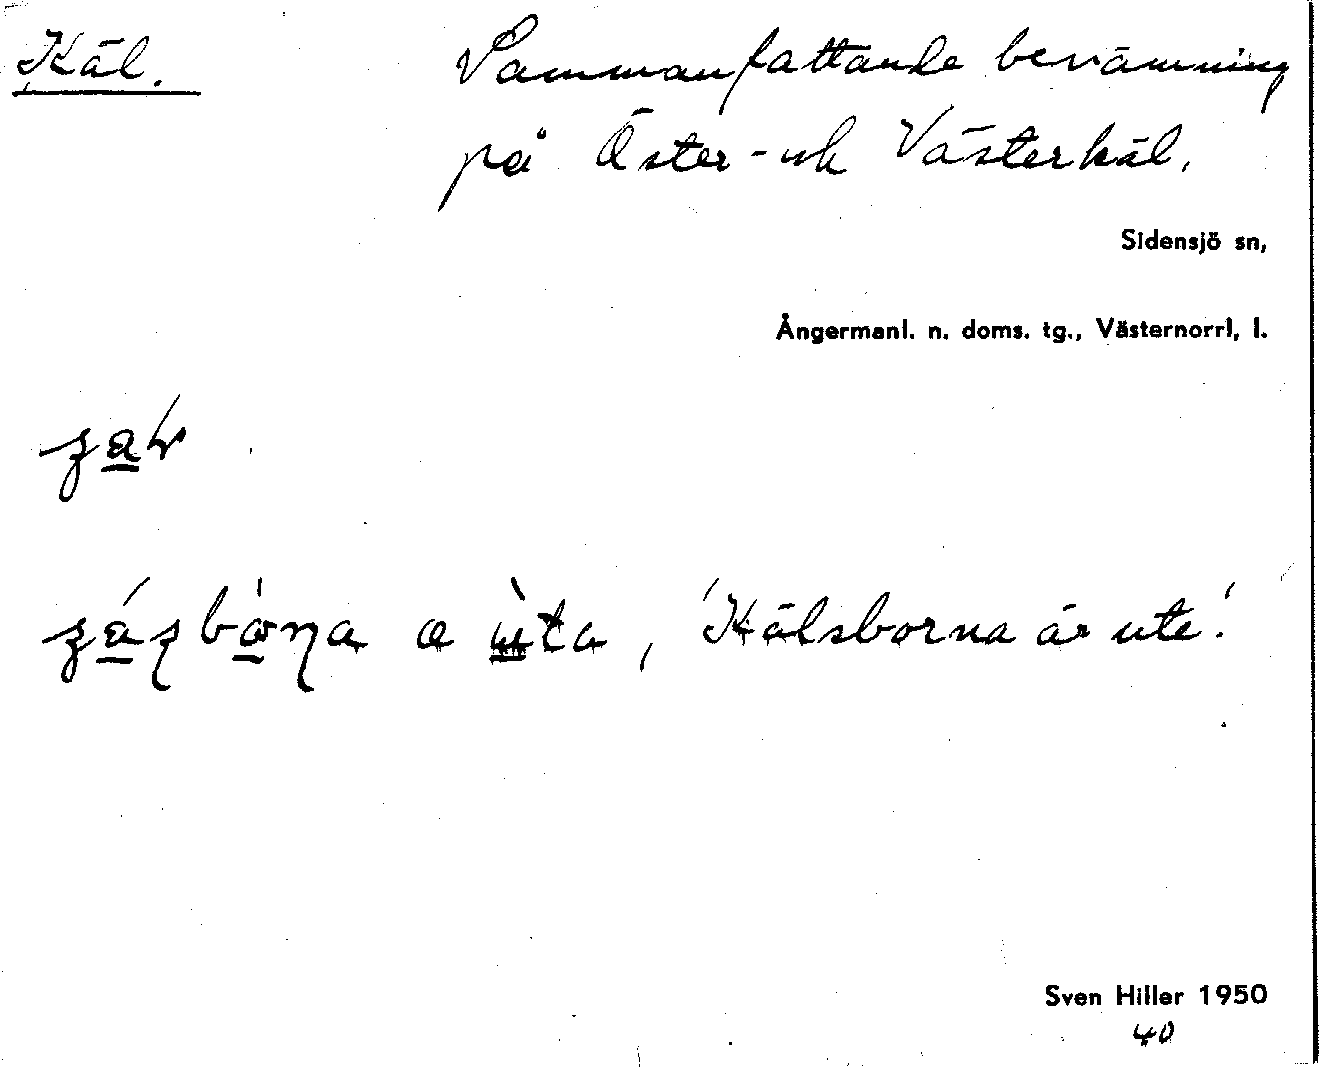 Käl.
Sammanfattande benämning
på Öster- och Västerkäl.
Sidensjö sn,
Ångermanl. n. doms. tg., Västernorrl, l.
'Kälsborna är ute'.
Sven Hiller 1950
40